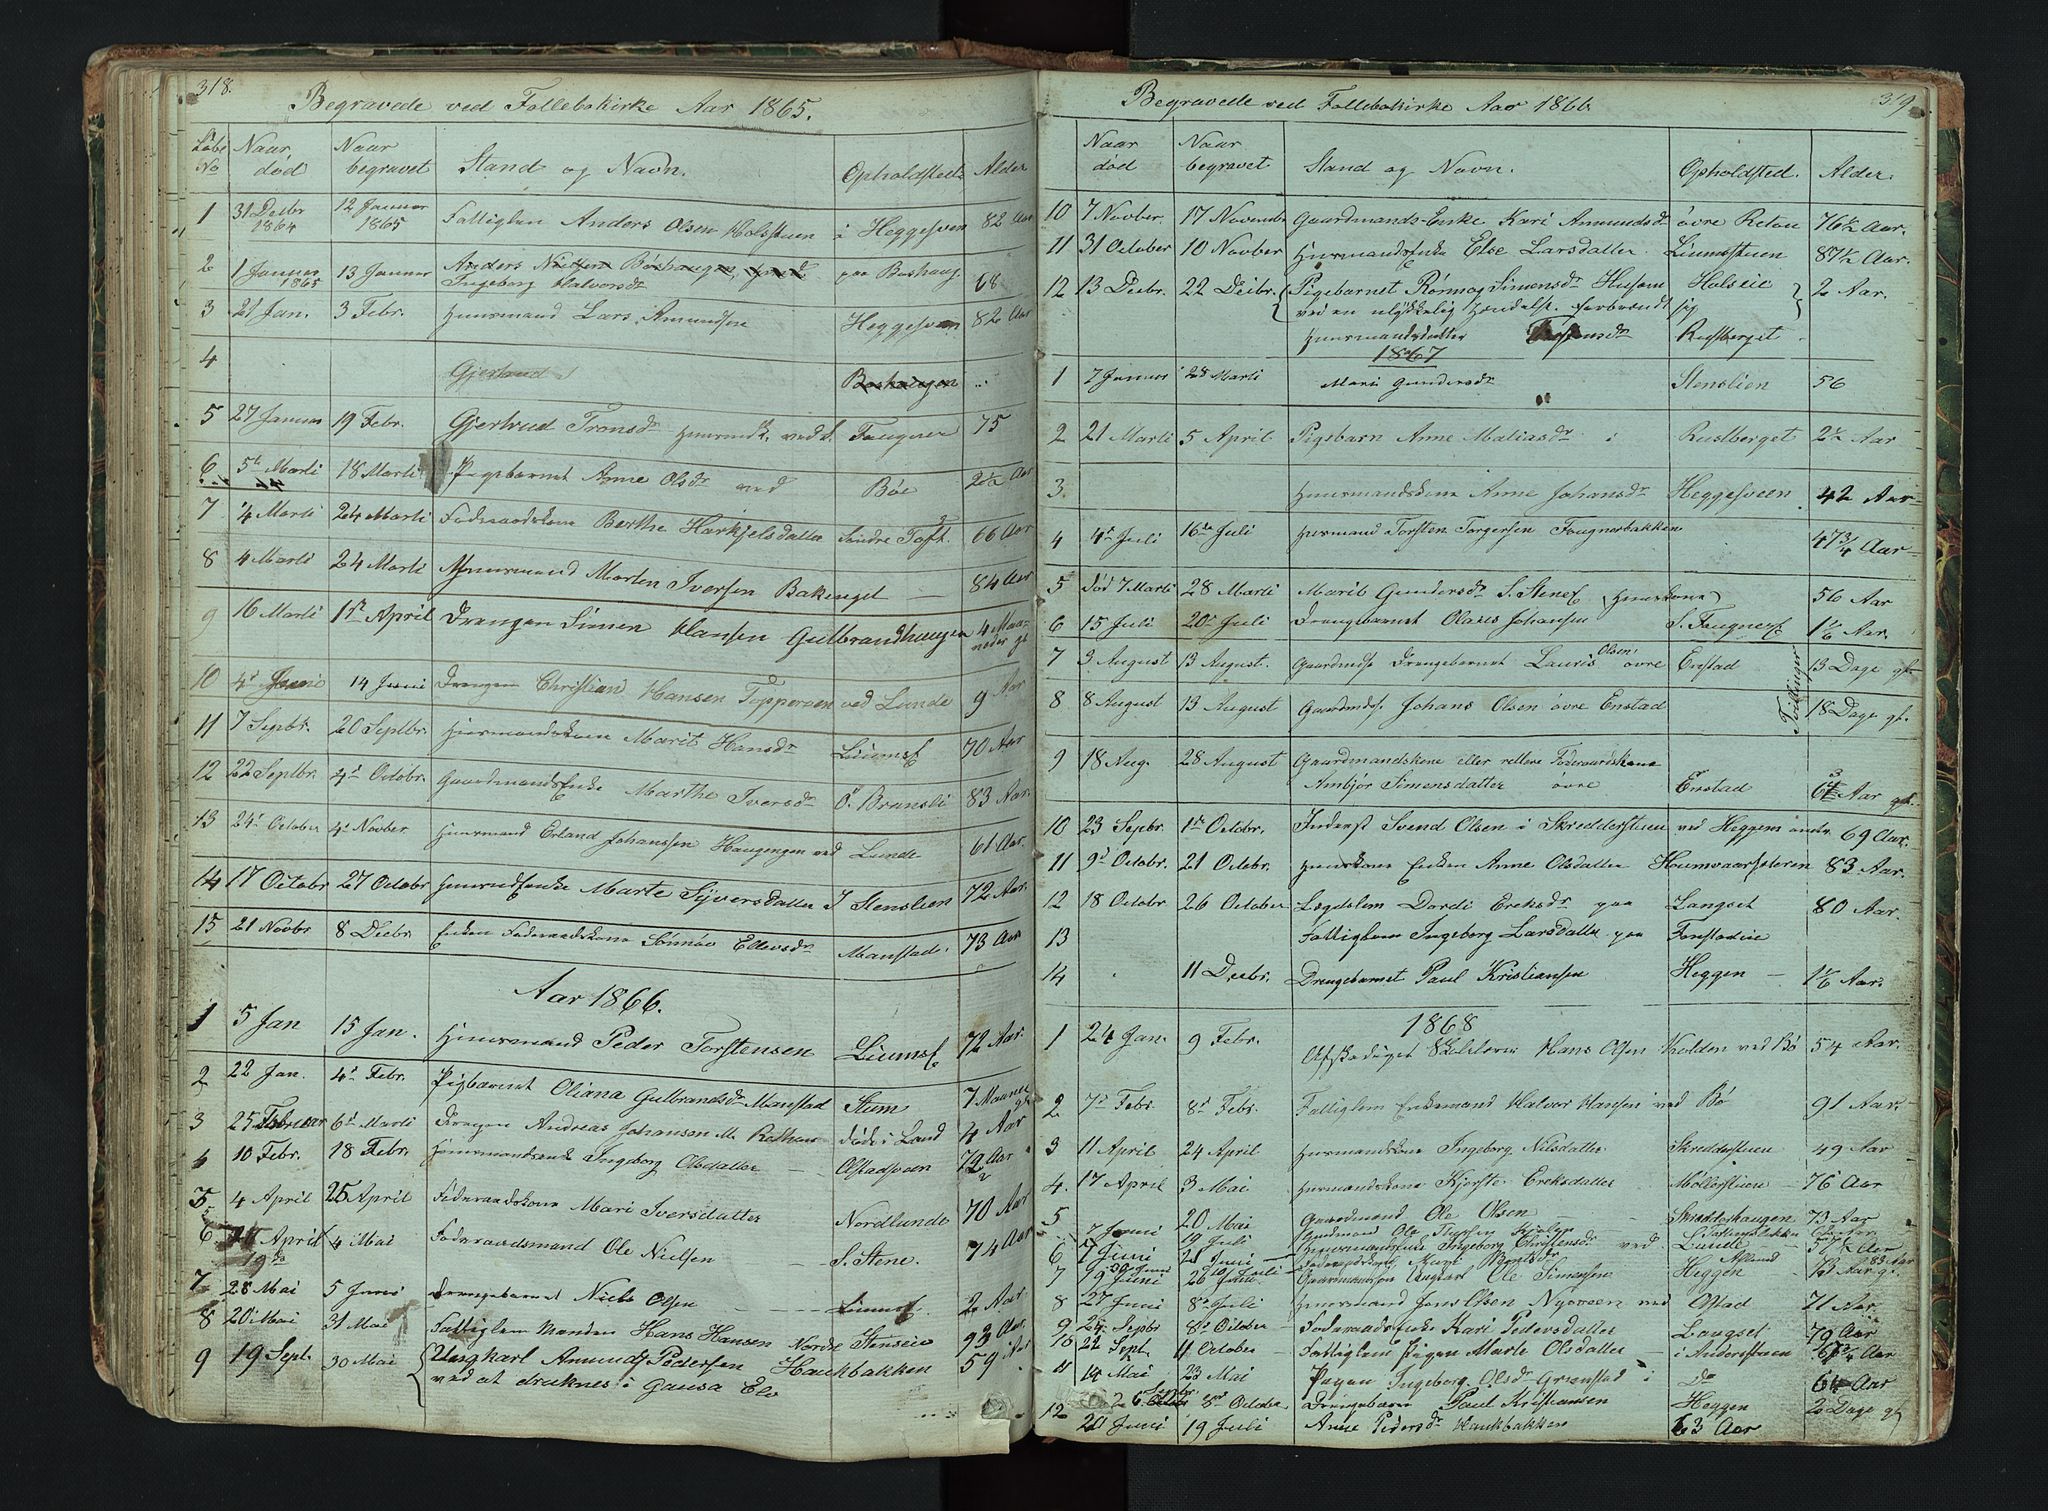 318.
Begravede ved Follebokirke Aar 1865.
Løbe No Naar død Naar begravet Stand og Navn. Opholdsted Alder
1 31 Decbr 1864 12 Januar 1865 Fattiglem Anders Olsen Holsstuen i Heggesveen 82 Aar
2 1 Januar 1865 13 Januar Anders Nielsen Boshaugen, paa Boshaug 68
Ingeborg Halvorsdr
3 21 Jan. 3 Febr. Huusmand Lars Amundsen Heggesveen 82 Aar
4 Gjertrud Boshaugen
5 27 Januar 19 Febr. Gjertrud Tronsdr huusmdk. ved S. Fougner 75
6 5t Marti 18 Marti Pigebarnet Anne Olsdr ved Böe 2½ Aar
7 4 Marti 24 Marti Föderaadskone Berthe Harkjelsdatter Söndre Toft. 66 Aar
8 4 Marti 24 Marti Huusmand Morten Iversen Bakenget 84 Aar
9 16 Marti 1st April Drengen Simen Hansen Gulbrandhaugen 4 Maaneder gl
10 4d Juni 14 Juni Drengen Christian Hansen Topperoen ved Lunde 9 Aar
11 7 Sepbr. 20 Septbr. Huusmandskone Marit Hansdr Liumsf 70 Aar
12 22 Septbr. 4d Octobr. Gaardmandsenke Marthe Iversdr Ö. Bransli 83 Aar.
13 24d October 4d Novber. Huusmand Erland Johanssen Haugengen ved Lunde 61 Aar.
14 17 Octobr 27 Octobr Huusmdsenke Marte Syversdatter I Stenslien 72 Aar.
15 21 Novbr 8 Decbr. Enken Föderaadskone Sönnöv Ellevsdr Manstad. 73 Aar
Aar 1866.
1 5 Jan 15 Jan. Huusmand Peder Torstensen Liumsf. 72 Aar.
2 22 Jan. 4d Febr. Pigbarnet Oliana Gulbrandsdr Manstad Stum 7 Maaneder gl
3 25 Februar 6d Marti Drengen Andreas Johansen M. Rothus döde i Land 4 Aar
4 10 Febr. 18 Febr. Huusmandsenke Ingeborg Olsdatter Olstadsveen 72 Aar
5 4 April 25 April Föderaadskone Mari Iversdatter Nordlunde 70 Aar
6 April 19de 4 Mai Föderaadsmand Ole Nielsen S. Stene. 74 Aar
7 28 Mai 5 Juni Drengebarnet Niels Olsen Liumsf. 2 Aar.
8 20 Mai 31 Mai Fattiglem Manden Hans Hansen Nordre Stenseie 93 Aar.
9 19 Sept. 30 Mai Ungkarl Amund Pedersen Haukbakken 59 Aar
ved at druknes i Gausa Elv
319
Begravede ved Follebokirke Aar 1866.
Naar død Naar begravet Stand og Navn. Opholdsted. Alder.
10 7 Novber. 17 November Gaardmands-Enke Kari Amundsdr övre Reton 76½ Aar.
11 31 October 10 Novber Huusmandsenke Else Larsdatter Liumsstuen 87½ Aar.
12 13 Decbr. 22 Decbr. Pigebarnet Rönnog Simensdr Husom Holseie 2 Aar.
ved en ulykkelig Hændelse forbrændt sig
Huusmandsdatter Torstensdr Rustberget
1867
1 7 Januar 28 Marti Mari Gundersdr Stenslien 56
2 21 Marti 5 April Pigebarn Anne Matiasdr i Rustberget 2½ Aar
3 Huusmandskone Anne Johansdr Heggesveen 42 Aar
4 4d Juli 16de Juli Huusmand Torsten Torgersen Fougnerbakken 47¾ Aar
5 död 7 Marti 28 Marti Marit Gundersdr S. Stenef (Huuskone) 56 Aar
6 15 Juli 20d Juli Drengebarnet Olaves Johansen S. Fougnerf 1⅙ Aar.
7 3 August 13 August. Gaardmds Drengebarnet Lauris Olsen övre Enstad 13 Dage gl.
Tvillinger
8 8 August 13 August Gaardmds. Johans Olsen övre Enstad 18 Dage gl.
9 18 Aug. 28 August Gaardmandskone eller rettere Föderaadskone
Ambjör Simensdatter övre Enstad 63 Aar gl.
10 23 Sepbr. 1st Octobr. Inderst Svend Olsen i Skredderstuen ved Heggem 69 Aar.
11 9d Octobr. 21 Octobr. Huuskone Enken Anne Olsdatter 83 Aar.
12 18 Octobr 26 October Lægdslem Dordi Ereksdr paa Langset 80 Aar.
13 Fattiglem Ingeborg Larsdatter paa Forstadeie
14 11 Decbr. Drengebarnet Paul Kristiansen Heggen 1⅙ Aar.
1868
1 24 Jan. 9 Febr. Afskediget Hans Olsen Kolden ved Bö 54 Aar.
2 7d Febr. 8d Febr. Fattiglem Enkemand Halvor Hansen ved Bö 91 Aar.
3 11 April 24 April Huusmandskone Ingeborg Nilsdatter Skredderstuen 49 Aar
4. 17 April 3 Mai Huusmandskone Kjerste Ereksdatter Möllerstuen 76 Aar
5 20 Mai Gaardmand Ole Olsen Skreddehaugen 73 Aar
7 Juni 19 Juli
6 7 Juni 21 Juni Huusmandsenke Ingeborg Christensdr ved Lunde 57½ Aar
7 19 Juni 26 Juni Gaardmandsön Ungkar Ole Simensen Heggen
8 27 Juni 8de Juli Huusmand Jens Olsen Nysveen ved Olstad 71 Aar
9 24 Sepbr 8d October Föderaadsenke Kari Pedersdatter Langset 79 Aar
10 22 Sept. 11 October Fattiglem Pigen Marte Olsdatter i Anderstuen 67¾ Aar
11 14 Mai 23 Mai Pigen Ingeborg Olsdr Grænstad i Do 64 Aar
12 8de October Drengebarn Paul Kristiansen Heggen 2 Dage gl
20 Juni 19 Juli Anne Pedersdr Haukbakken 63 Aar